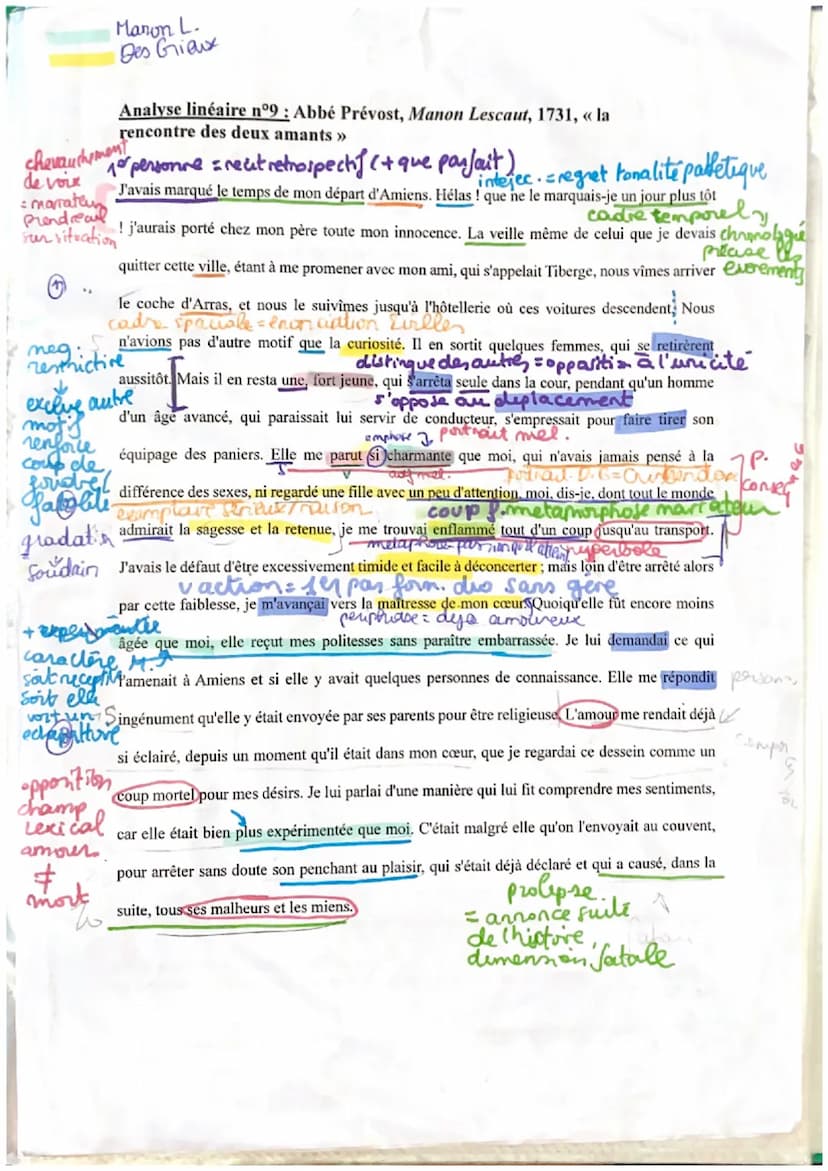 Manon L.
Des Grieux
Analyse linéaire n°9 : Abbé Prévost, Manon Lescaut, 1731, « la
rencontre des deux amants »
chevauchement
de voix
= narrateur
prend recul
sur situation
1e personne = récit rétrospectif (+ que parfait)
interjec. = regret tonalité pathétique
J'avais marqué le temps de mon départ d'Amiens. Hélas ! que ne le marquais-je un jour plus tôt
cadre temporel
! j'aurais porté chez mon père toute mon innocence. La veille même de celui que je devais
chronologique
précise les
quitter cette ville, étant à me promener avec mon ami, qui s'appelait Tiberge, nous vîmes arriver
évènements
le coche d'Arras, et nous le suivîmes jusqu'à l'hôtellerie où ces voitures descendent. Nous
cadre spaciale = énonciation
n'avions pas d'autre motif que la curiosité. Il en sortit quelques femmes, qui se retirèrent
neg.
restrictive
exclue autre
motif
renforce
coup de
foudre/
fatalité
distingue des autres = opposition à l'unicité
aussitôt. Mais il en resta une, fort jeune, qui s'arrêta seule dans la cour, pendant qu'un homme
s'oppose au déplacement
d'un âge avancé, qui paraissait lui servir de conducteur, s'empressait pour faire tirer son
emphase
portrait mel.
équipage des paniers. Elle me parut si charmante que moi, qui n'avais jamais pensé à la
P.
conseq
différence des sexes, ni regardé une fille avec un peu d'attention, moi, dis-je, dont tout le monde
coup f. métamorphose narrateur
admirait la sagesse et la retenue, je me trouvai enflammé tout d'un coup jusqu'au transport.
gradation
soudain
hyperbole
J'avais le défaut d'être excessivement timide et facile à déconcerter ; mais loin d'être arrêté alors
v action = 1er pas
sans gêne
par cette faiblesse, je m'avançai vers la maîtresse de mon cœur. Quoiqu'elle fût encore moins
périphrase = déjà amoureux
+ expérimentée
caractère
soit
soit elle
voit un
âgée que moi, elle reçut mes politesses sans paraître embarrassée. Je lui demandai ce qui
l'amenait à Amiens et si elle y avait quelques personnes de connaissance. Elle me répondit
ingénument qu'elle y était envoyée par ses parents pour être religieuse. L'amour me rendait déjà
si éclairé, depuis un moment qu'il était dans mon cœur, que je regardai ce dessein comme un
opposition
champ
lexical
amour
≠
mort
coup mortel pour mes désirs. Je lui parlai d'une manière qui lui fit comprendre mes sentiments,
car elle était bien plus expérimentée que moi. C'était malgré elle qu'on l'envoyait au couvent,
pour arrêter sans doute son penchant au plaisir, qui s'était déjà déclaré et qui a causé, dans la
suite, tous ses malheurs et les miens.
prolepse
= annonce suite
de l'histoire,
dimension fatale